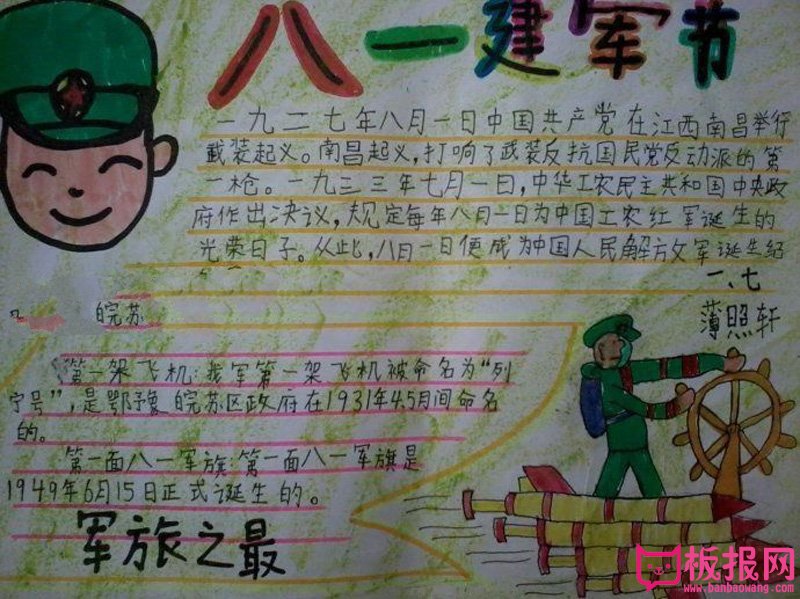 八一建军节
一九二七年八月一日中国共产党在江西南昌举行
武装起义。南昌起义，打响了武装反抗国民党反动派的第
一枪。一九三三年七月一日，中华工农民主共和国中央政
府作出决议，规定每年八月一日为中国工农红军诞生的
光荣日子。从此，八月一日便成为中国人民解放军诞生纪
一、七
薄照轩
皖苏
第一架飞机：我军第一架飞机被命名为“列
宁号”，是鄂予豫皖苏区政府在1931年4.5月间命名
的。
第一面八一军旗：第一面八一军旗是
1949年6月15日正式诞生的。
军旅之最
板报网
www.banbaowang.com